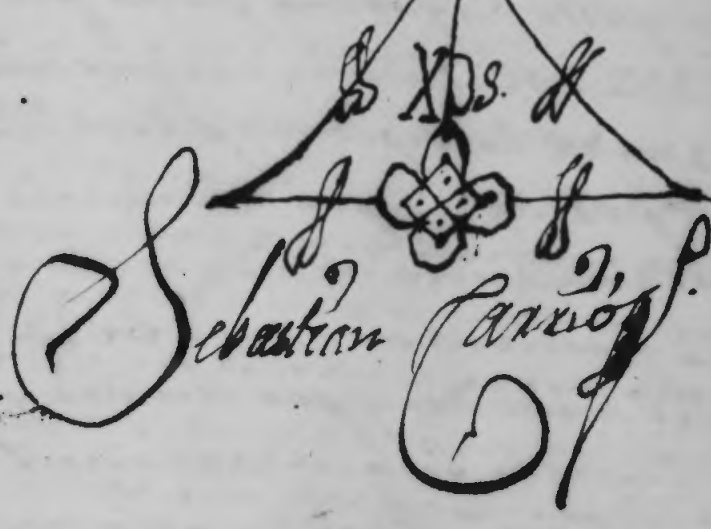 XDS.
Sebastian Carrió